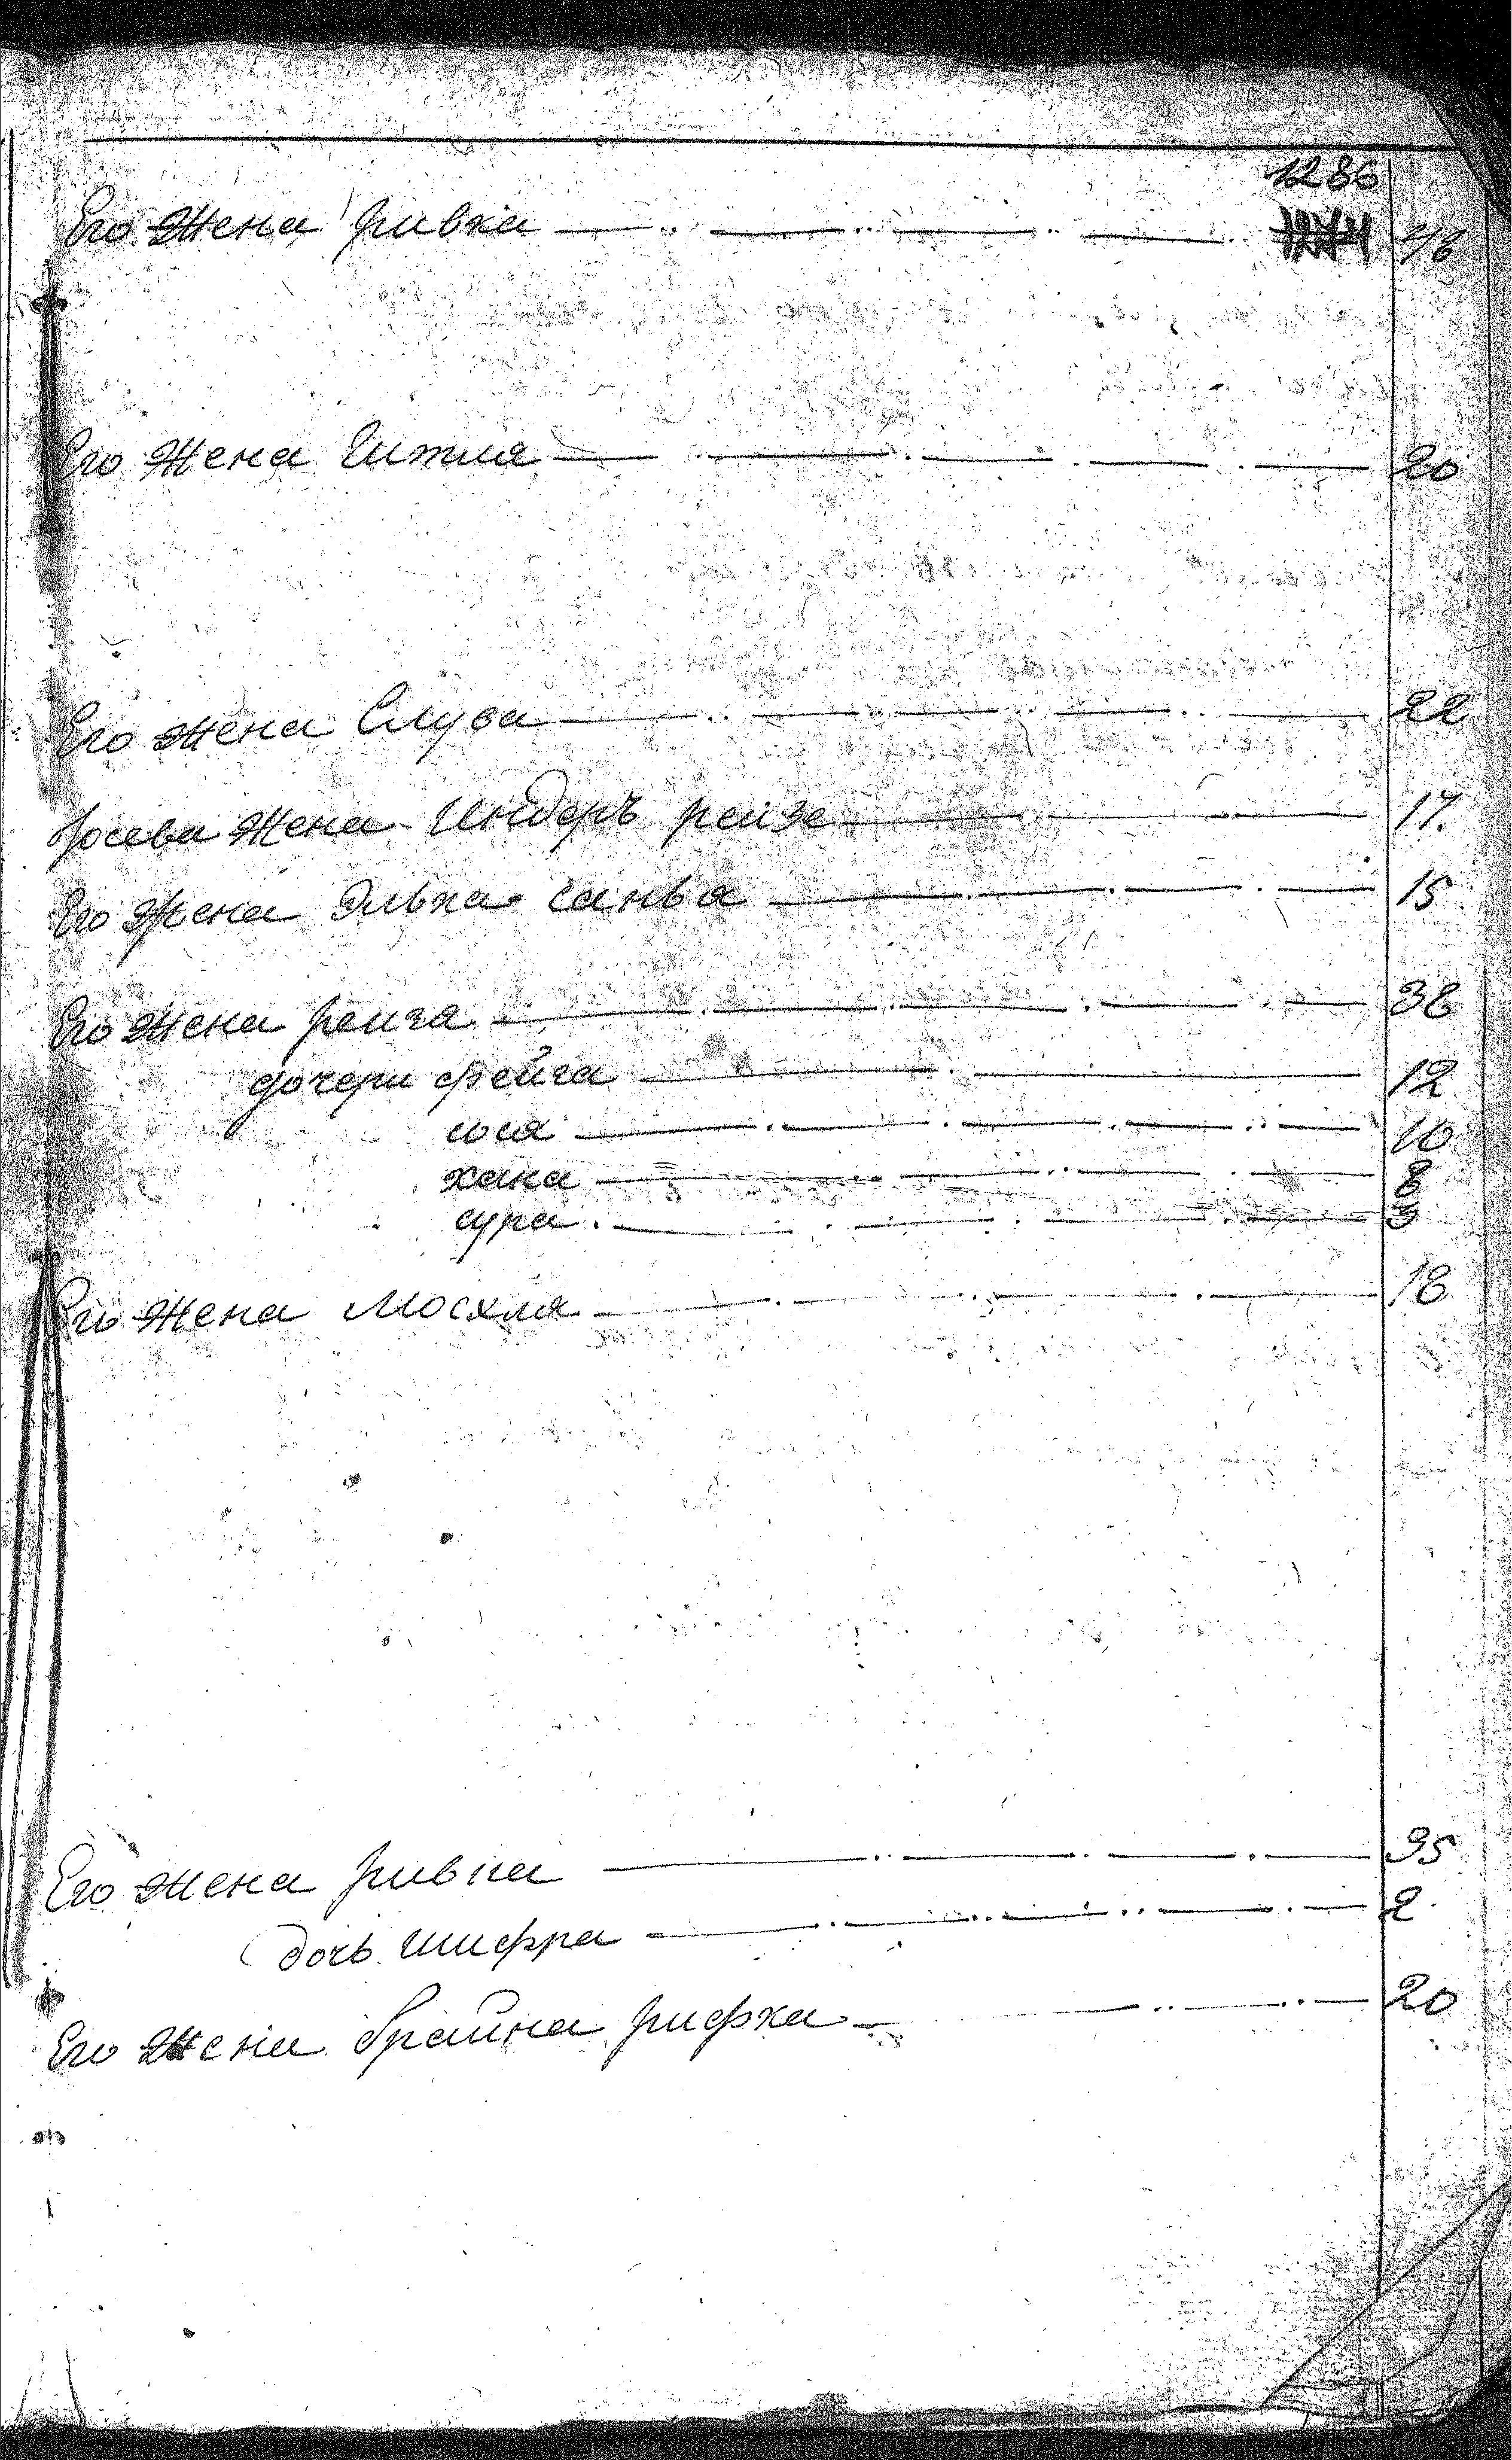 1286
Его Жена ривка 1274 46
Его Жена Гитля 20
Его жена Слува 22
Иосева Жена Индеръ рейзе 17.
Его Жена Элька 15
Его Жена рейза 38
дочери фейга 12
сося 10
хана 8
сура 3
Его Жена Мосхля 18
Его жена ривка 35
дочь шифра 2
Его Жена брайна рифка 20